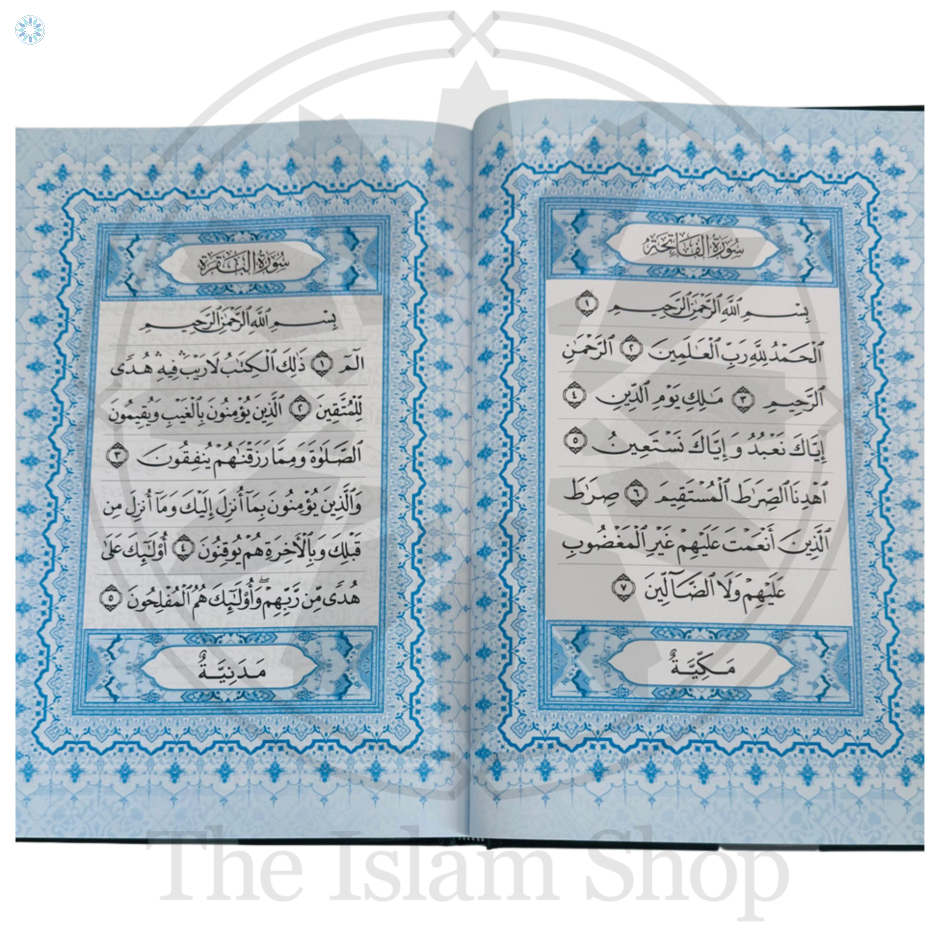 سُورَةُ الْفَاتِحَةِ
بِسْمِ اللَّهِ الرَّحْمَٰنِ الرَّحِيمِ ١
الْحَمْدُ لِلَّهِ رَبِّ الْعَٰلَمِينَ ٢ الرَّحْمَٰنِ
الرَّحِيمِ ٣ مَٰلِكِ يَوْمِ الدِّينِ ٤
إِيَّاكَ نَعْبُدُ وَإِيَّاكَ نَسْتَعِينُ ٥
اهْدِنَا الصِّرَٰطَ الْمُسْتَقِيمَ ٦ صِرَٰطَ
الَّذِينَ أَنْعَمْتَ عَلَيْهِمْ غَيْرِ الْمَغْضُوبِ
عَلَيْهِمْ وَلَا الضَّآلِّينَ ٧
مَكِّيَّةٌ
سُورَةُ الْبَقَرَةِ
بِسْمِ اللَّهِ الرَّحْمَٰنِ الرَّحِيمِ
الٓمٓ ١ ذَٰلِكَ الْكِتَٰبُ لَا رَيْبَ ۛ فِيهِ ۛ هُدًى
لِلْمُتَّقِينَ ٢ الَّذِينَ يُؤْمِنُونَ بِالْغَيْبِ وَيُقِيمُونَ
الصَّلَوٰةَ وَمِمَّا رَزَقْنَٰهُمْ يُنْفِقُونَ ٣
وَالَّذِينَ يُؤْمِنُونَ بِمَآ أُنْزِلَ إِلَيْكَ وَمَآ أُنْزِلَ مِنْ
قَبْلِكَ وَبِالْآخِرَةِ هُمْ يُوقِنُونَ ٤ أُولَٰٓئِكَ عَلَىٰ
هُدًى مِّنْ رَّبِّهِمْ ۖ وَأُولَٰٓئِكَ هُمُ الْمُفْلِحُونَ ٥
مَدَنِيَّةٌ
The Islam Shop